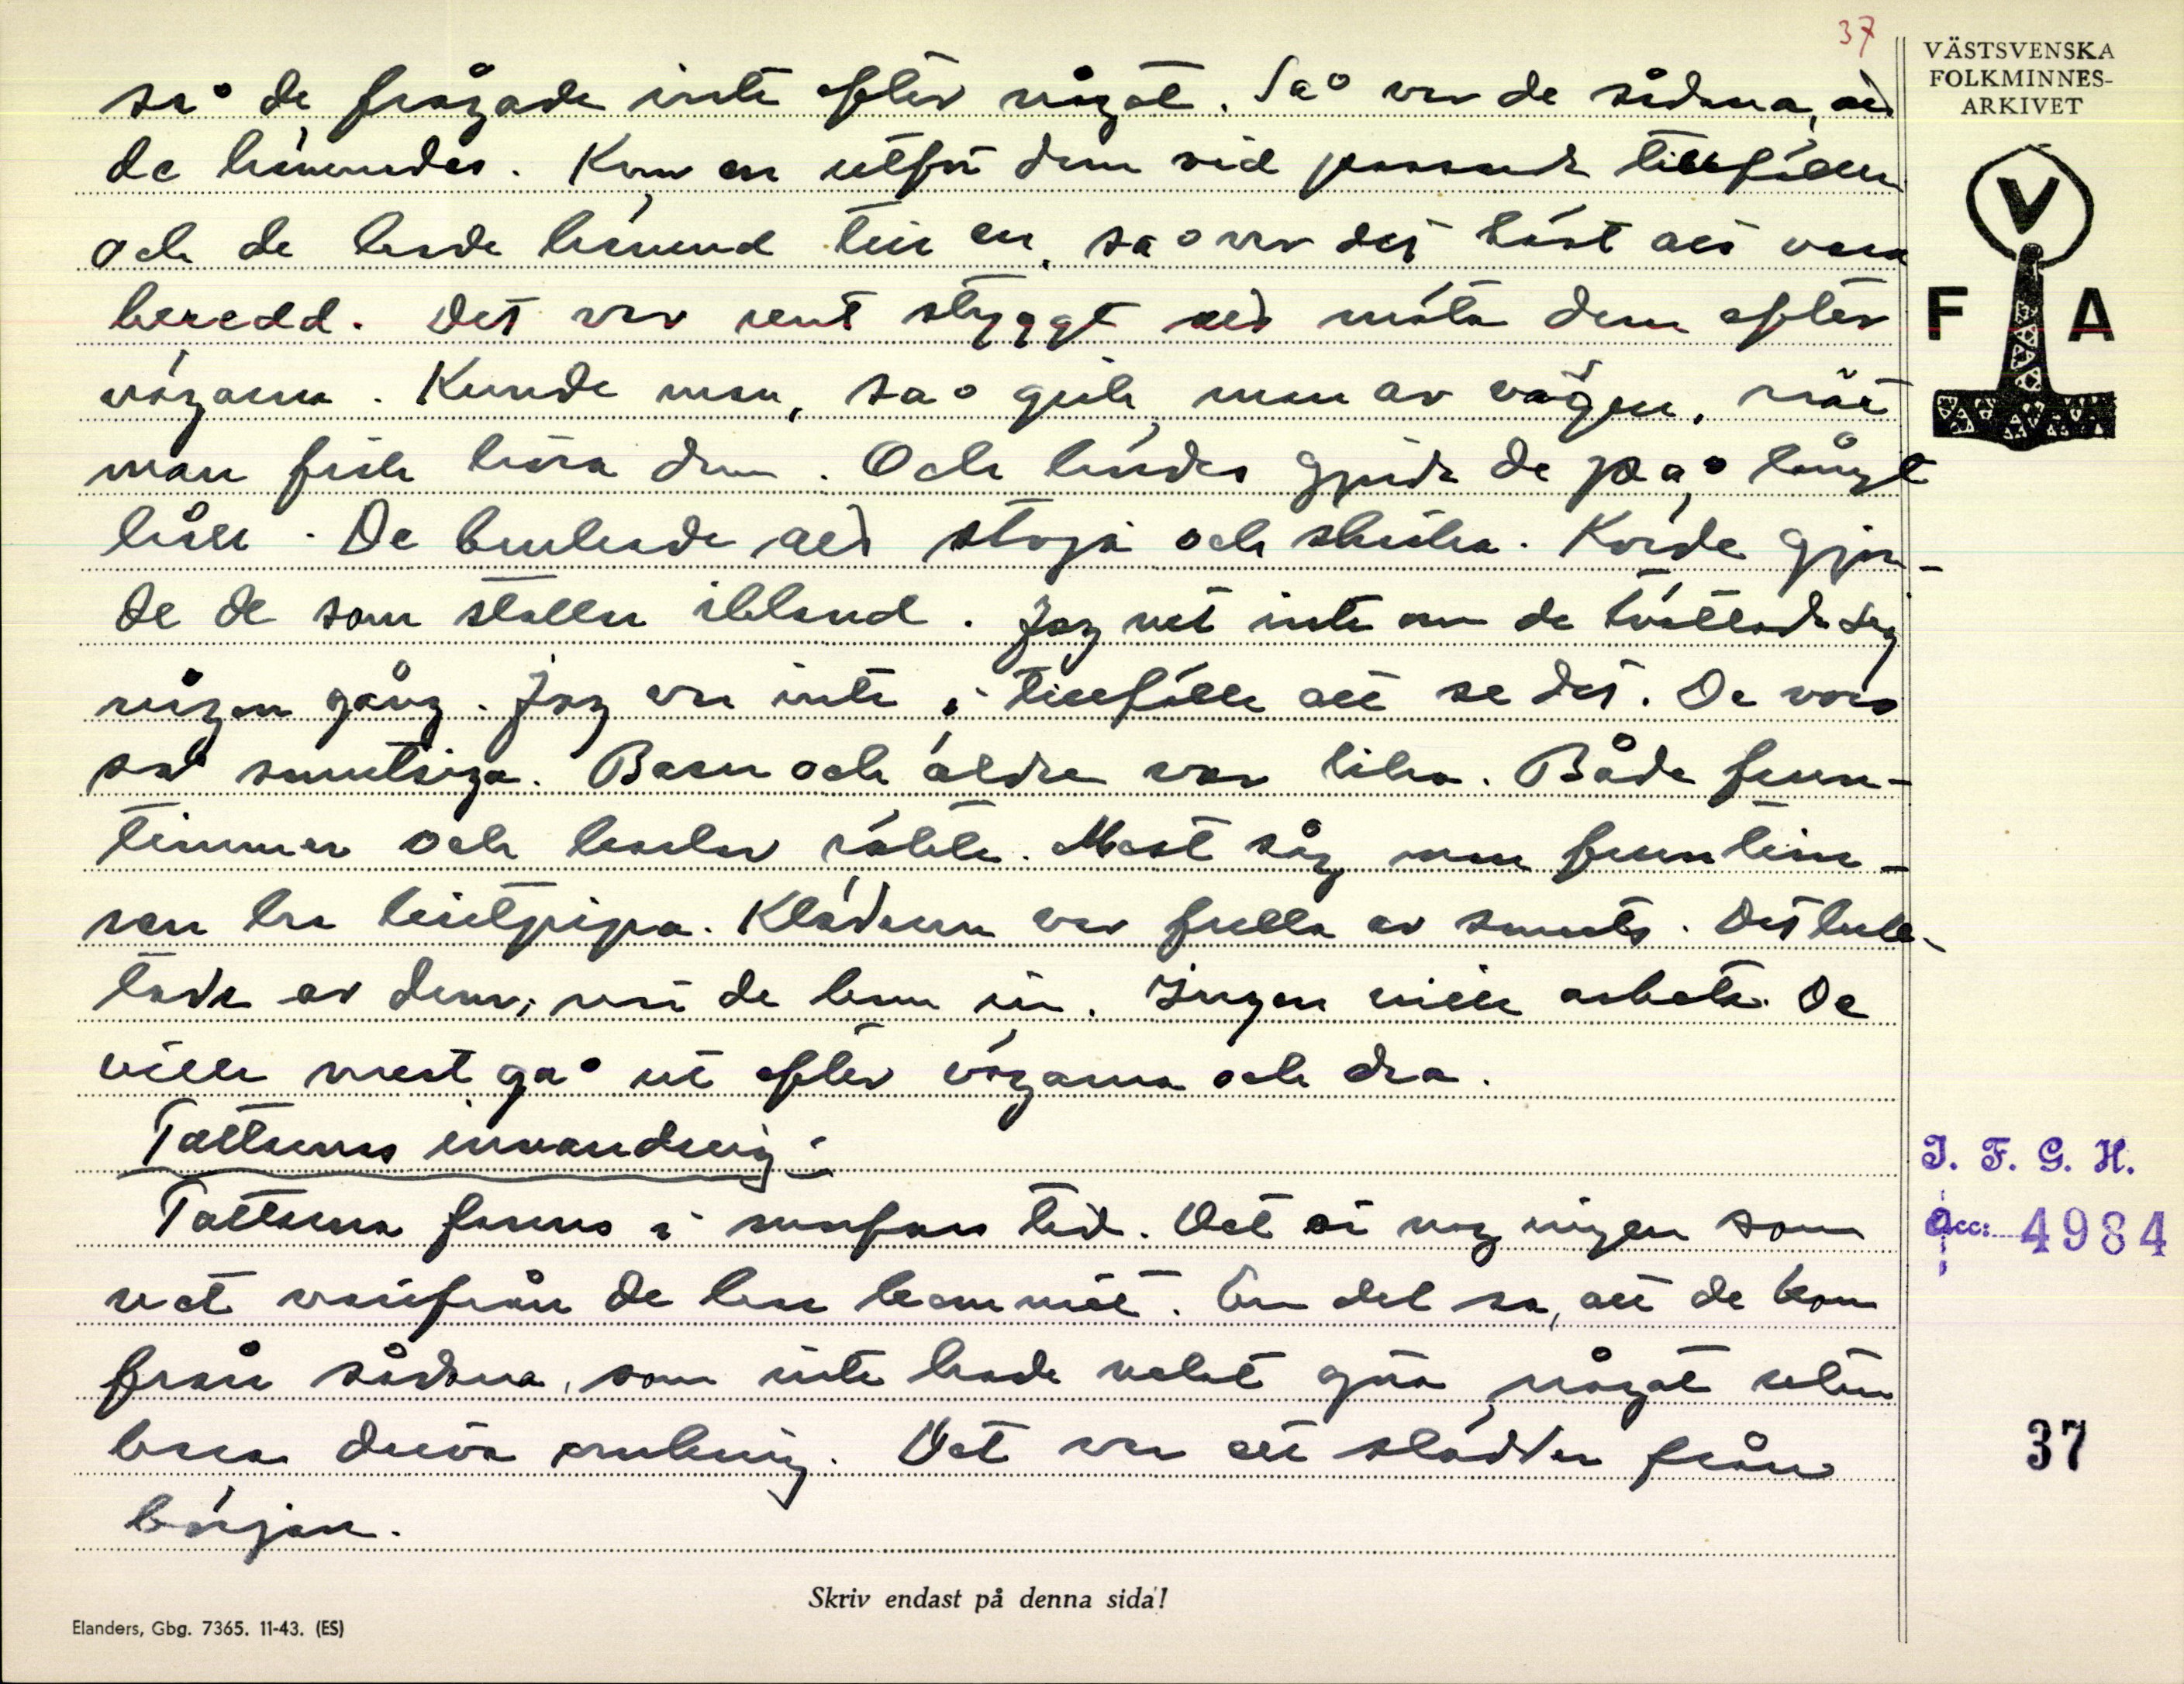 37
VÄSTSVENSKA
FOLKMINNES-
ARKIVET
V
F A
så de frågade inte efter något. Så var de sådana, att
de hämnades. Kom en utför dem vid passande tillfällen
och de hade hämnd till en, så var det bäst att vara
beredd. Det var rent styggt att möta dem efter
vägarna. Kunde man, så gick man av vägen, när
man fick höra dem. Och hördes gjorde de på långt
håll. De brukade att stoja och skrika. Körde gjor-
de de som stollar ibland. Jag vet inte om de tvättade sig
någon gång. Jag var inte i tillfälle att se det. De voro
så smutsiga. Barn och äldre var lika. Både frun-
timmer och karlar rökte. Mest såg man fruntim-
ren ha kritpipa. Kläderna var fulla av smuts. Det
av dem, när de kom in. Ingen ville arbeta. De
ville mest gå ut efter vägarna och dra.
Tattarnas invandring:
Tattarna fanns i morfars tid. Det är nog ingen som
vet varifrån de har kommit. En del sa, att de kom
från sådana, som inte hade velat göra något utan
bara driva omkring. Det var ett slödder från
början.
I. F. G. H.
Acc: 4984
37
Skriv endast på denna sida!
Elanders, Gbg. 7365. 11-43. (ES)